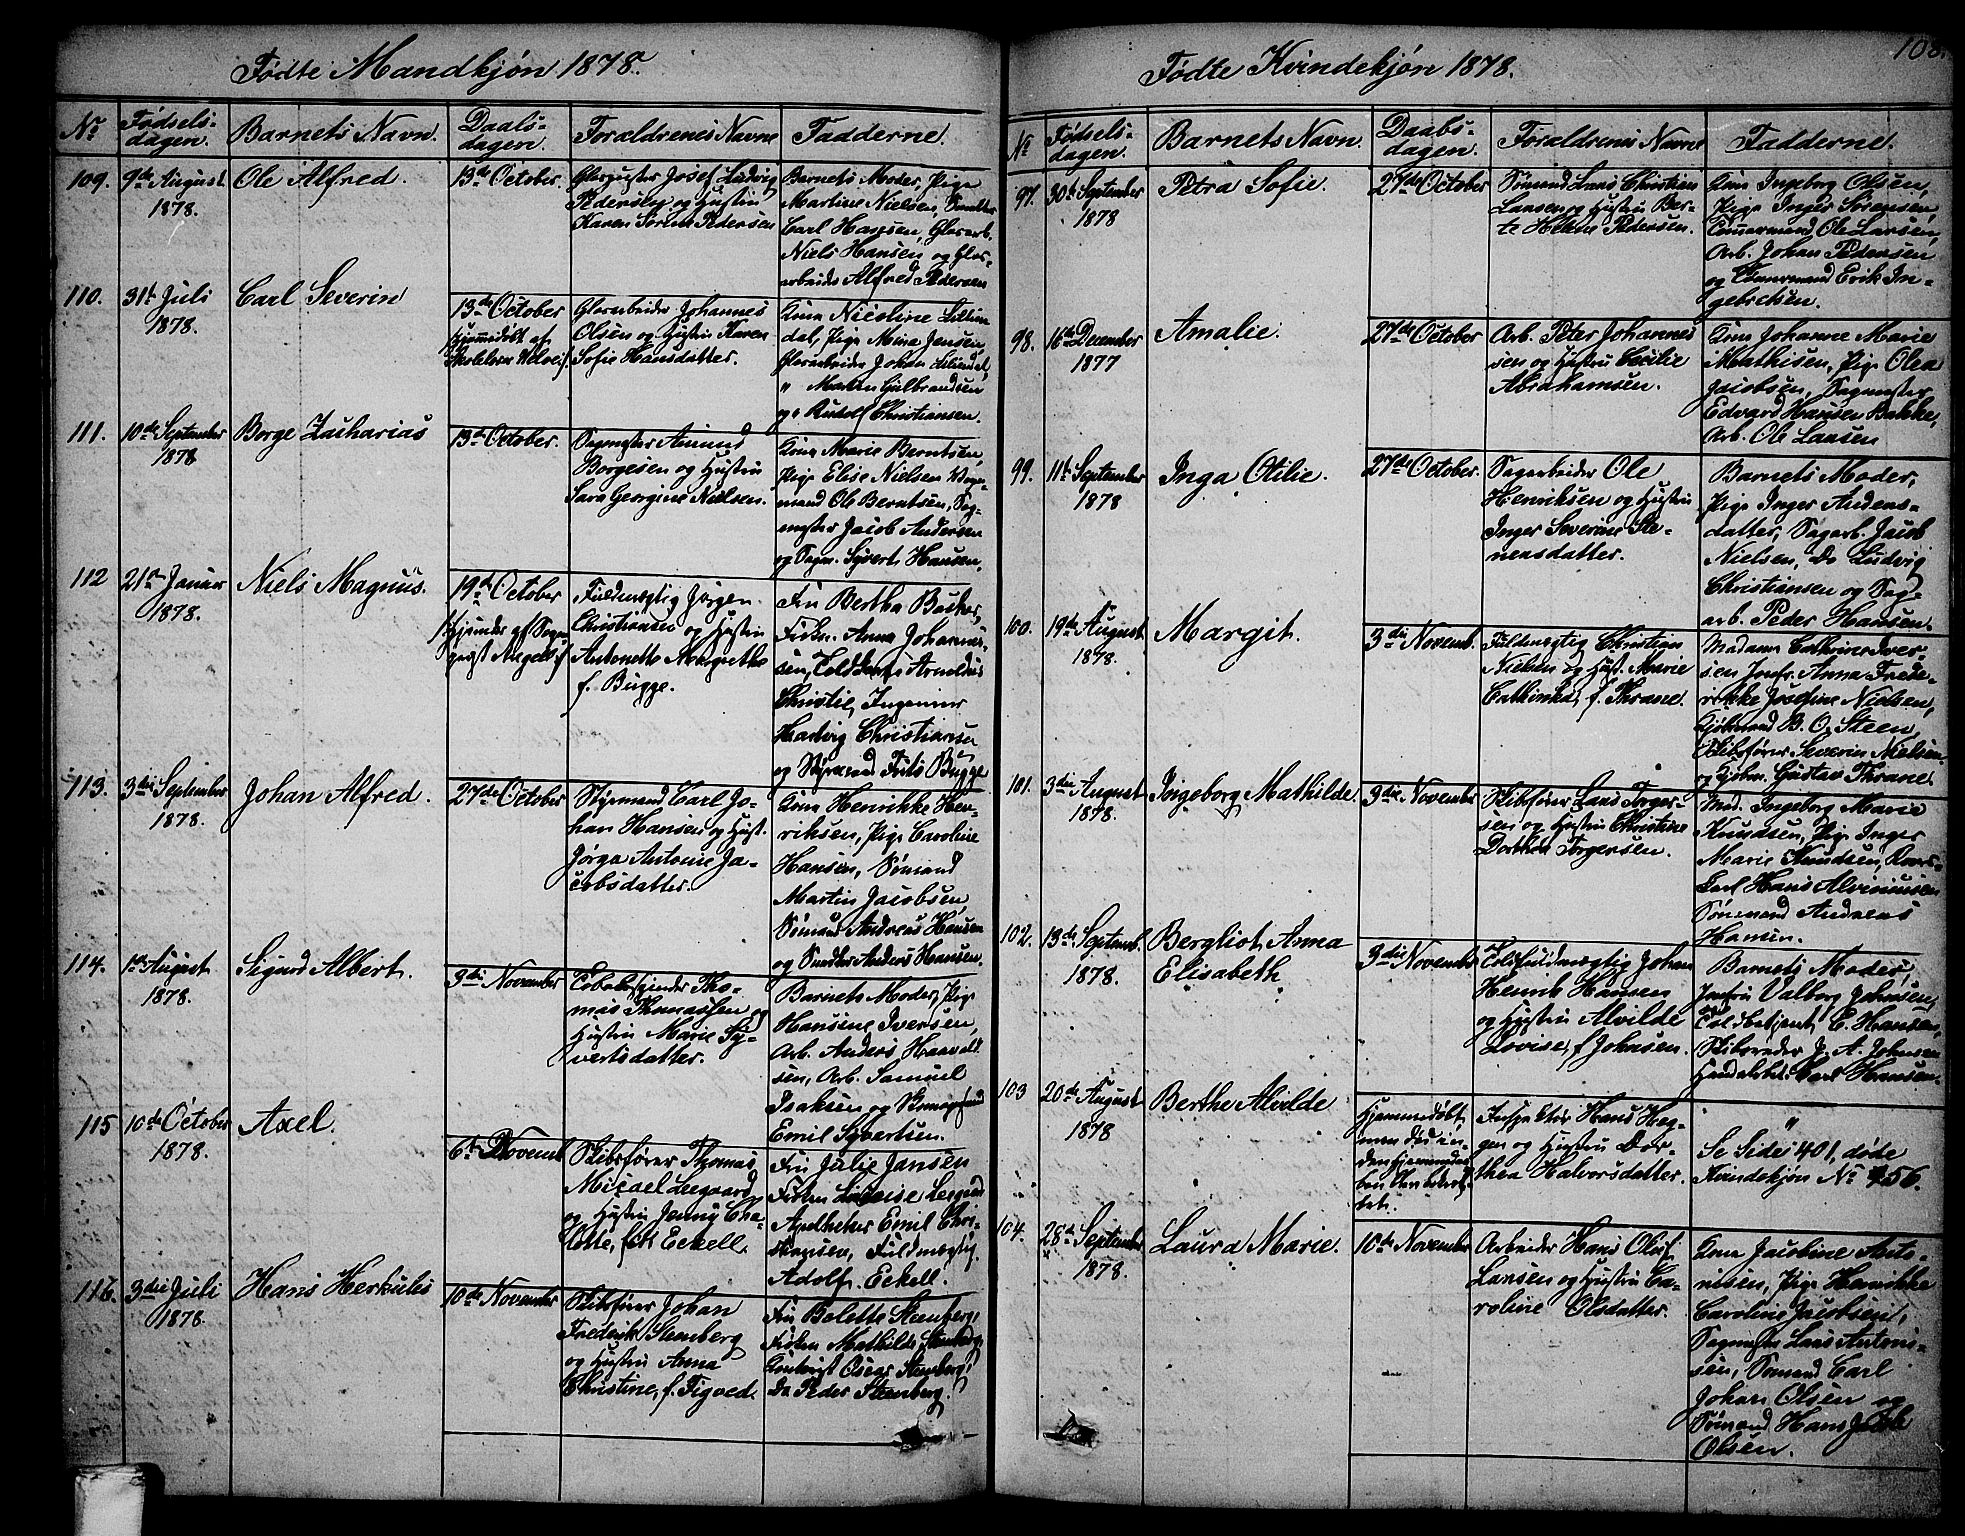 Fødte Mandkjøn 1878.
No
Fødsels-
dagen.
Barnets Navn.
Daabs-
dagen.
Forældrenes Navne
Fadderne.
109.
9de August
1878.
Ole Alfred.
13de October.
Josef Ludvig
Pedersen og Hustru
Karen Pedersen
Barnets Moder, Pige
Martine Nielsen,
Carl Hansen, Glasarb.
Niels Hansen og Glas-
arbeider Alfred Pedersen
110.
31te Juli
1878.
Carl Severin
13de October
hjemmedøbt af
Skolelærer
Glasarbeider Johannes
Olsen og Hustru Karen
Sofie Hansdatter.
Kona Nicoline
dal, Pige Mina Jensen,
Glasarbeider Johan
" Martin Gulbrandsen
og " Rudolf Christiansen.
111.
10de September
1878
Borge Zacharias
13de October.
Sagmester Amund
Borgesen og Hustru
Sara Georgine Nielsen.
Kona Marie Berntsen,
Pige Elise Nielsen
mand Ole Berntsen, Sag-
mester Jacob Andersen
og Sagm. Syvert Hansen.
112
21de Januar
1878.
Niels Magnus.
19de October
Hjemdøbt af Sogne-
præst
Fuldmægtig Jørgen
Christiansen og Hustru
Antonette Margrethe
f. Bugge.
Fru Bertha
Frøken Anna Johannes-
sen, Toldkass. Arnoldus
Christie, Ingeniør
Christiansen
og Styrmand Frits Bugge
113.
3die September
1878.
Johan Alfred.
27de October
Styrmand Carl Jo-
han Hansen og Hust.
Jørga Antonie Ja-
cobsdatter.
Kona Henrikke Hen-
riksen, Pige Caroline
Hansen, Sømand
Martin Jacobsen,
Sømand Andreas Hansen
og Anders Hansen.
114.
1ste August
1878.
Sigurd Albert.
3die November
Tobakspinder Tho-
mas Thomassen og
Hustru Marie Sy-
vertsdatter.
Barnets Moder, Pige
Hansine Iversen,
Arb. Anders Haavald-
sen, Arb. Samuel
Isaksen og
Emil Syvertsen.
115
10de October
1878.
Axel.
6te Novemb.
Skibsfører Thomas
Micael Leegaard
og Hustru Jenny Cha-
lotte, født Eckell.
Fru Julie Jansen
Frøken Lovise Leegaard
Apotheker Emil Chri-
stensen, Fuldmægtig
Adolf Eckell.
116.
3die Juli
1878.
Hans Herkules
10de November
Skibsfører Johan
Frederik Stenberg
og Hustru Anna
Christine, f. Tigved.
Fru Bolette Stenberg,
Frøken Mathilde Stenberg,
Oscar Stenberg,
Do Peder Stenberg.
Fødte Kvindekjøn 1878.
108.
No
Fødsels-
dagen.
Barnets Navn.
Daabs-
dagen.
Forældrenes Navne
Fadderne.
97.
30te September
1878
Petra Sofie.
27de October
Sømand Lars Christian
Larsen og Hustru Ber-
te Helene Pedersen.
Kona Ingeborg Olsen,
Pige Inger Sørensen,
Tømermand Ole Larsen,
Arb. Johan Pedersen
og Tømermand Erik In-
gebretsen.
98.
16de December
1877
Amalie.
27de October
Arb. Peter Johannes-
sen og Hustru Cecilie
Abrahamsen.
Kona Johanne Marie
Mathisen, Pige Olea
Jacobsen, Sagmester
Edvard Hansen Bakke,
Arb. Ole Larsen
99.
11te September
1878
Inga Otilie.
27de October.
Sagarbeider Ole
Henriksen og Hustru
Inger Severine Ste-
nersdatter.
Barnets Moder,
Pige Inger Anders-
datter, Sagarb. Jacob
Nielsen, Do Ludvig
Christiansen og Sag-
arb. Peder Hansen.
100.
19de August
1878.
Margit.
3die Novemb.
Fuldmægtig Christian
Nielsen og Hust. Marie
Cathinka, f. Thrane.
Madame Cathrine Iver-
sen Jomfr. Anna Frede-
rikke Josefine Nielsen,
Kjøbmand B. O. Steen,
Skibsfører Severin Nielsen
og Kjøbm. Gustav Thrane.
101.
3die August
1878.
Ingeborg Mathilde.
3die November
Skibsfører Lars Torger-
sen og Hustru Christine
Dorthea Torgersen.
Mad. Ingeborg Marie
Knudsen, Pige Inger
Marie Knudsen,
karl Hans
Sømand Andreas
Hansen.
102.
13de Septemb.
1878.
Bergliot Anna
Elisabeth.
3die November
Toldfuldmægtig Johan
Henrik Hansen
og Hustru Alvilde
Lovise, f. Johnsen.
Barnets Moder,
Jomfru Valborg Johnsen,
Toldbetjent C. Hansen,
Skibsreder J. A. Johnsen
Carl Hansen.
103
20de August
1878
Berthe Alvilde
Hjemmedøbt,
men død in-
den
ben
tet.
Hans Hag-
gen og Hustru Dor-
thea Halvorsdatter.
"
Se Side 401, døde
Kvindekjøn No 56.
104.
28de September
1878.
Laura Marie.
10de November
Arbeider Hans Oluf
Larsen og Hustru Ca-
roline Olsdatter.
Kona Jacobine Anto-
nisen, Pige Henrikke
Caroline Jacobsen,
Sagmester Lars Antoni-
sen, Sømand Carl
Johan Olsen og
Sømand Hans Jacob
Olsen.